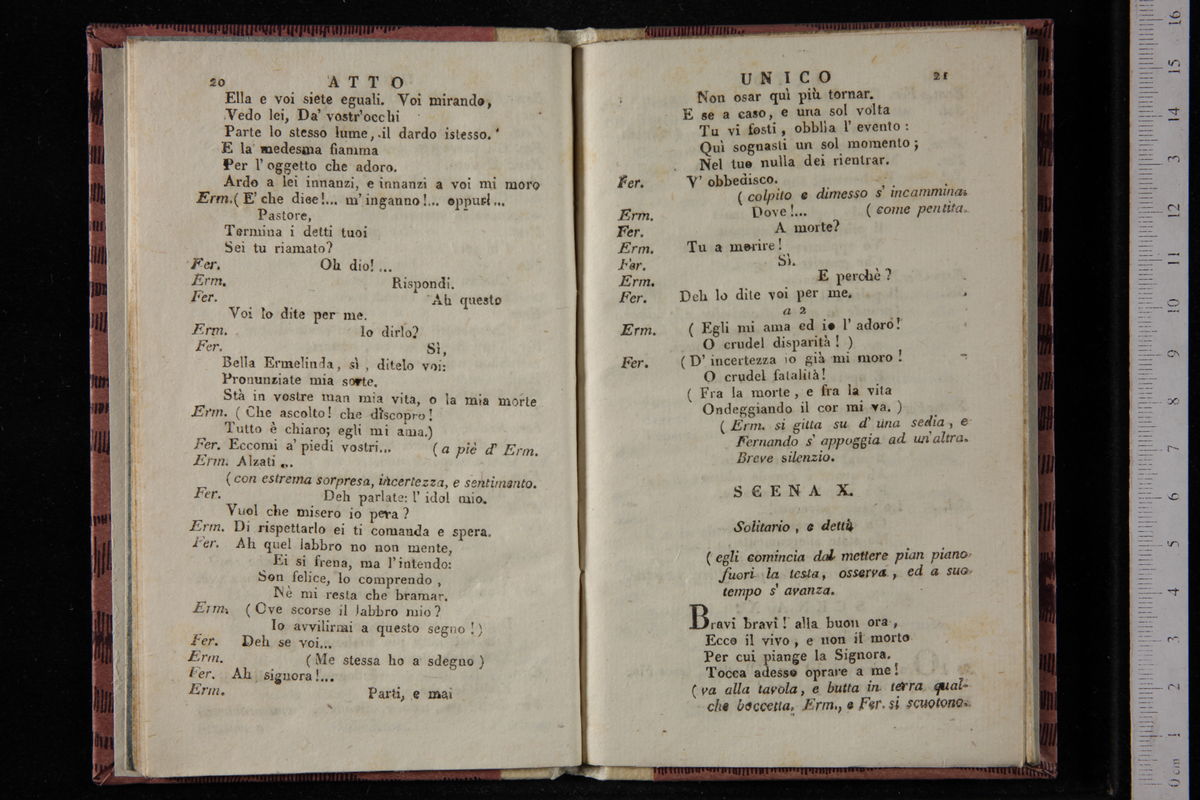 20 ATTO
Ella e voi siete eguali. Voi mirando,
Vedo lei, Da' vostr'occhi
Parte lo stesso lume, il dardo istesso.
E la medesma fiamma
Per l'oggetto che adoro.
Ardo a lei innanzi, e innanzi a voi mi moro
Erm. ( E' che dice!... m'inganno!... eppur!...
Pastore,
Termina i detti tuoi
Sei tu riamato?
Fer. Oh dio!...
Erm. Rispondi.
Fer. Ah questo
Voi lo dite per me.
Erm. Io dirlo?
Fer. Sì,
Bella Ermelinda, sì, ditelo voi:
Pronunziate mia sorte.
Stà in vostre man mia vita, o la mia morte
Erm. ( Che ascolto! che discopro!
Tutto è chiaro; egli mi ama.)
Fer. Eccomi a' piedi vostri... ( a piè d' Erm.
Erm. Alzati ...
( con estrema sorpresa, incertezza, e sentimento.
Fer. Deh parlate: l' idol mio.
Vuol che misero io pera?
Erm. Di rispettarlo ei ti comanda e spera.
Fer. Ah quel labbro no non mente,
Ei si frena, ma l'intendo:
Son felice, lo comprendo,
Nè mi resta che bramar.
Erm. (Ove scorse il labbro mio?
Io avvilirmi a questo segno!)
Fer. Deh se voi...
Erm. (Me stessa ho a sdegno)
Fer. Ah signora!...
Erm. Parti, e mai
UNICO 21
Non osar quì più tornar.
E se a caso, e una sol volta
Tu vi fosti, obblia l' evento:
Quì sognasti un sol momento;
Nel tuo nulla dei rientrar.
Fer. V' obbedisco.
( colpito e dimesso s' incammina.
Erm. Dove!... ( come pentita.
Fer. A morte?
Erm. Tu a morire!
Fer. Sì.
Erm. E perchè?
Fer. Deh lo dite voi per me.
a 2
Erm. ( Egli mi ama ed io l' adoro!
O crudel disparità! )
Fer. (D' incertezza io già mi moro!
O crudel fatalità!
( Fra la morte, e fra la vita
Ondeggiando il cor mi va. )
( Erm. si gitta su d' una sedia, e
Fernando s' appoggia ad un'altra.
Breve silenzio.
SCENA X.
Solitario, e detti
( egli comincia dal mettere pian piano
fuori la testa, osserva, ed a suo
tempo s' avanza.
Bravi bravi! alla buon ora,
Ecco il vivo, e non il morto
Per cui piange la Signora.
Tocca adesso oprare a me!
( va alla tavola, e butta in terra qual-
che boccetta. Erm., e Fer. si scuotono.